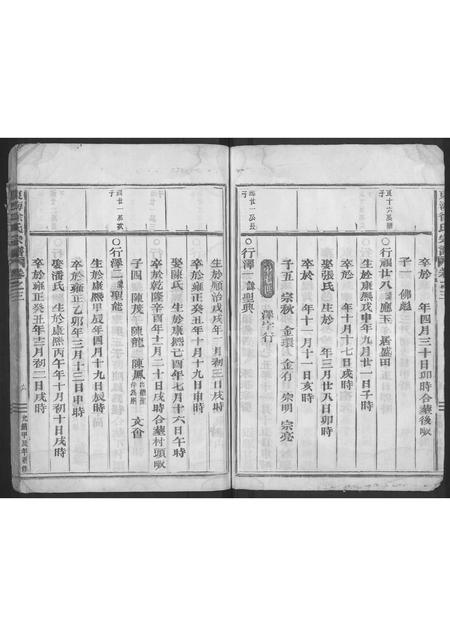 卒於 年四月三十日卯時合葬後畈
子一 佛彪
○行順廿八 諱應玉 居藍田
生於康熙戊申年九月廿一日子時
卒於 年十月十七日戌時
娶張氏 生於 年三月廿八日卯時
卒於 年十一月十一日亥時
子五 宗秋 金環 金有 宗明 宗亮
澤字行
○行澤一 諱聖興
生於順治戊戌年 月初三日戌時
卒於雍正癸丑年十月十九日申時
娶陳氏 生於康熙己酉年七月十六日午時
卒於乾隆辛酉年十二月二十日戌時合葬村頭畈
子四 陳茂 陳龍 陳鳳 文會
○行澤二 諱聖龍
生於康熙甲辰年四月十九日辰時
卒於雍正乙卯年三月十三日申時
娶潘氏 生於康熙丙午年十月初十日戌時
卒於雍正癸丑年十二月初二日戌時
東海徐氏宗譜 卷之三